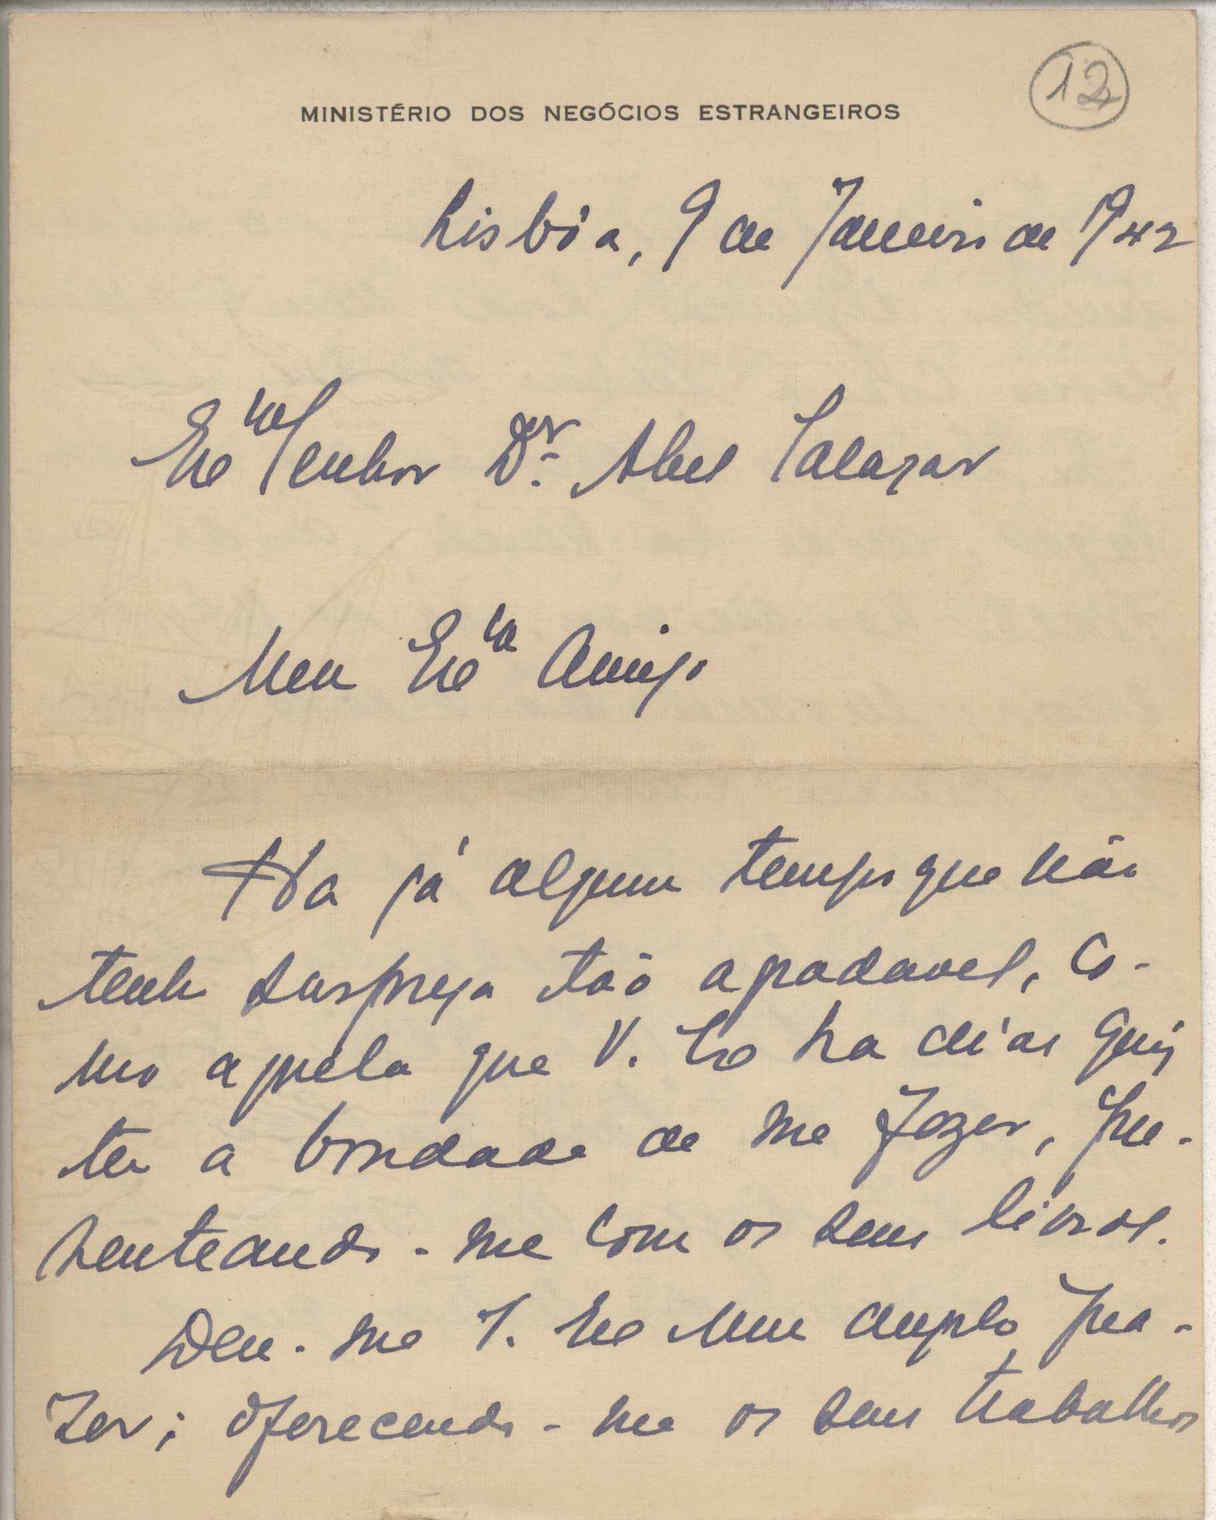 12
MINISTÉRIO DOS NEGÓCIOS ESTRANGEIROS
Lisbôa, 9 de Janeiro de 1942
Exmo Senhor Dr. Abel Salazar
Meu Exmo Amigo
Ha já algum tempo que não
tenho surpreza tão agradavel, co-
mo aquela que V. Ex ha dias quiz
ter a bondade de me fazer, pre-
senteando-me com os seus livros.
Deu-me V. Exe um amplo pra-
zer; oferecendo-me os seus trabalhos